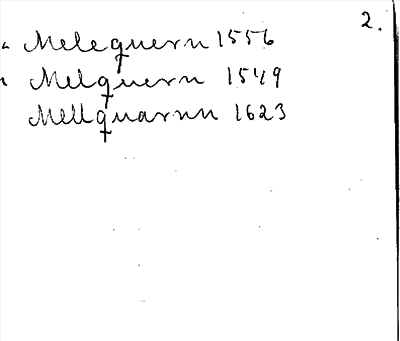 2.
Melequern 1556
Melquern 1549
Mellquarnn 1623